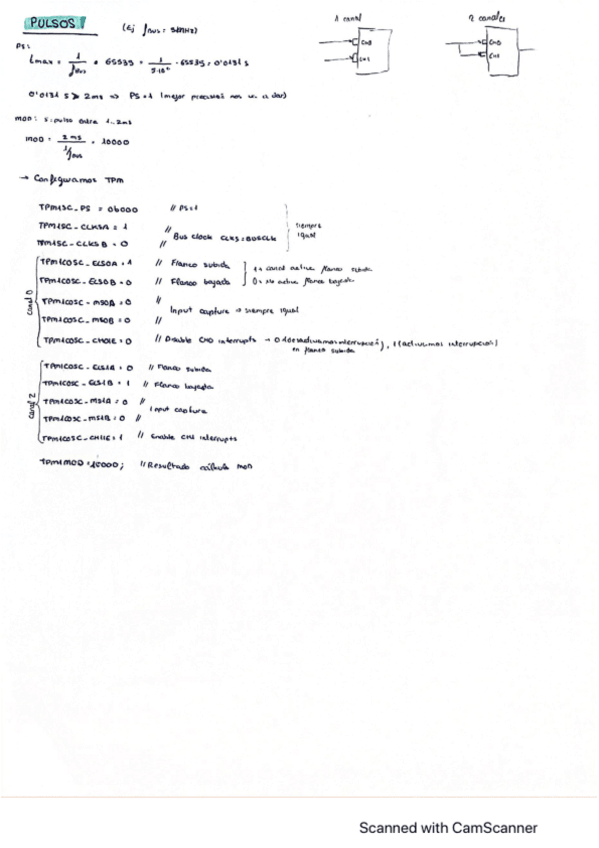 PULSOS
(Ej fBUS = 5MHz)
1 canal
2 canales
CH0
CH1
CH0
CH1
PS:
tmax = 1/fBUS · 65535 = 1/5·10⁶ · 65535 = 0'0131 s
0'0131 s > 2ms ⇒ PS=1 (mejor precisión nos va a dar)
MOD: si pulso entre 1..2ms
MOD = 2ms / 1/fBUS = 10000
→ Configuramos TPM
TPM1SC_PS = 0b000 // PS=1
TPM1SC_CLKSA = 1 //
Bus clock CLKS=BUSCLK
TPM1SC_CLKSB = 0 //
siempre igual
canal 0
TPM1C0SC_ELS0A = 1 // Flanco subida
1 → canal active flanco subida
TPM1C0SC_ELS0B = 0 // Flanco bajada
0 = No active flanco bajada
TPM1C0SC_MS0A = 0 //
Input capture → siempre igual
TPM1C0SC_MS0B = 0 //
TPM1C0SC_CH0IE = 0 // Disable CH0 interrupts → 0 (desactivamos interrupción), 1 (activamos interrupcion)
en flanco subida
canal 2
TPM1C0SC_ELS1A = 0 // Flanco subida
TPM1C0SC_ELS1B = 1 // Flanco bajada
TPM1C0SC_MS1A = 0 //
Input capture
TPM1C0SC_MS1B = 0 //
TPM1C0SC_CH1IE = 1 // Enable CH1 interrupts
TPM1MOD = 10000; // Resultado cálculo MOD
Scanned with CamScanner